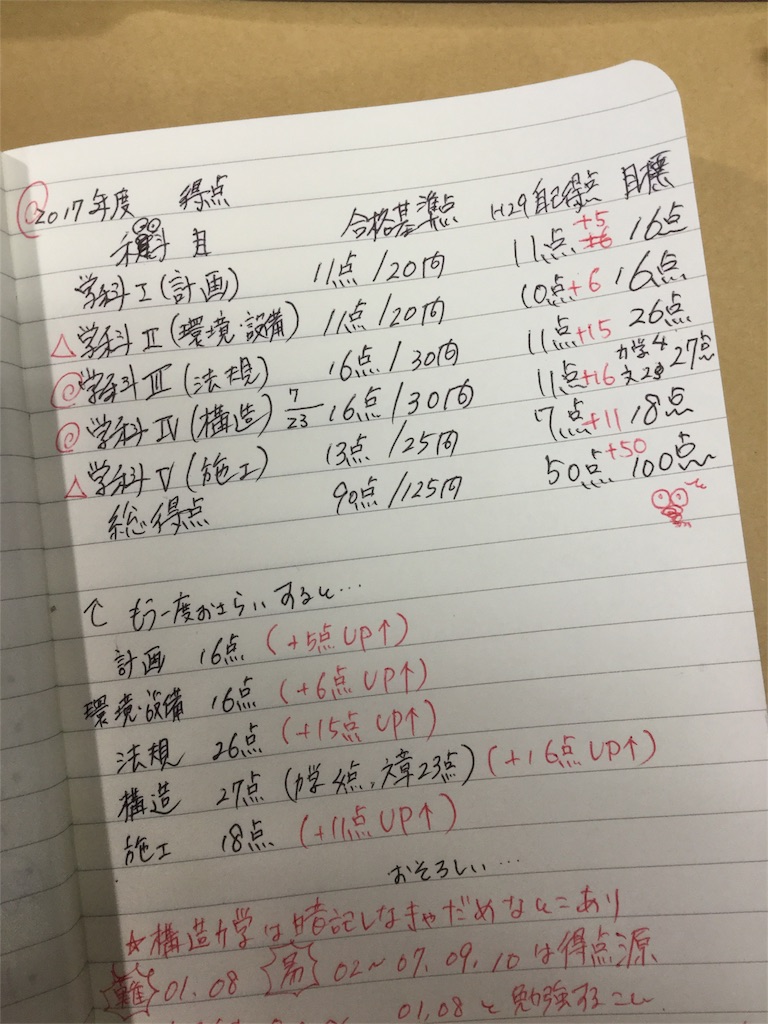 2017年度 得点
科目 合格基準点 H29自己得点 目標
学科Ⅰ(計画) 11点/20問 11点 +5 16点
△学科Ⅱ(環境・設備) 11点/20問 10点+6 16点
◎学科Ⅲ(法規) 16点/30問 11点+15 26点
◎学科Ⅳ(構造) 7/23 16点/30問 11点+16 力学4 文23 27点
△学科Ⅴ(施工) 13点/25問 7点+11 18点
総得点 90点/125問 50点+50 100点
↑ もう一度おさらいすると…
計画 16点 (+5点UP↑)
環境・設備 16点 (+6点UP↑)
法規 26点 (+15点UP↑)
構造 27点 (力学4点、文章23点) (+16点UP↑)
施工 18点 (+11点UP↑)
おそろしい…
☆構造力学は暗記しなきゃだめなとこあり
難 01.08 易 02~07.09.10は得点源
01.08と勉強すること